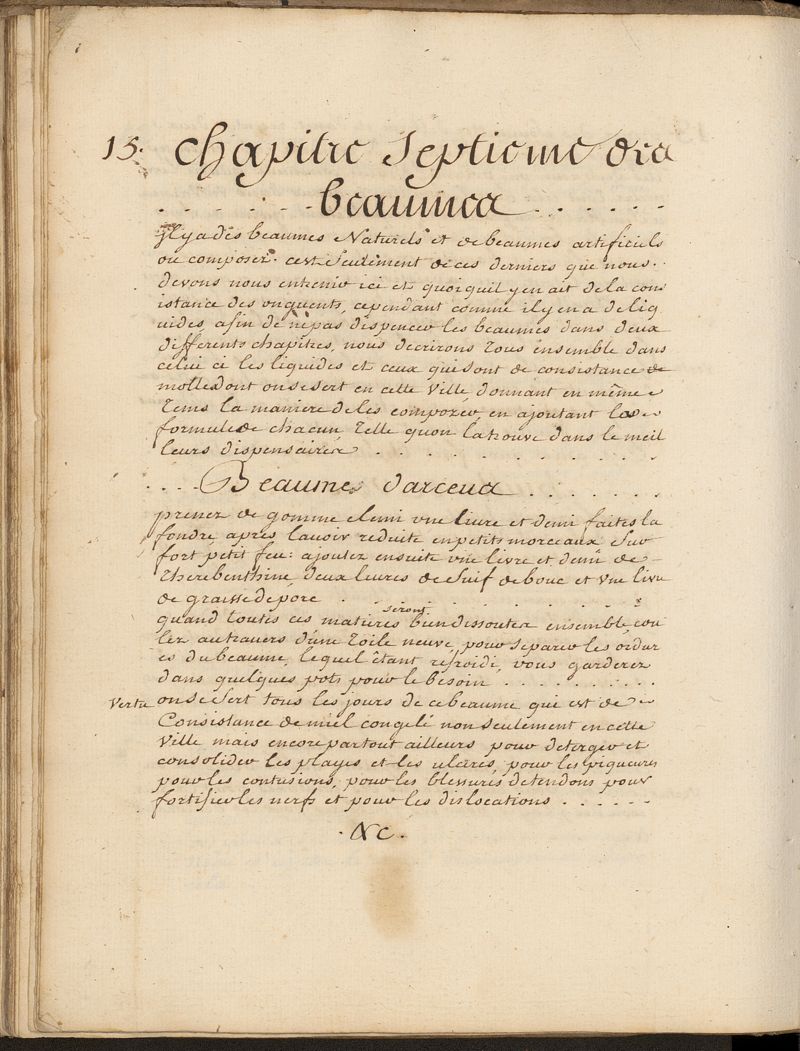 15. Chapitre Septieme des
beaumes
Il y a des beaumes Naturels et de beaumes artificiels
ou composez. cest Seulement de ces derniers que nous
devons nous entrenir ici et quoiquil y en ait de la con
sistance des onguents, cependant comme il y en a de liq
uides, afin de ne pas dispencer les beaumes dans deux
differents chapitres, nous decrirons tous ensemble dans
celui ci les liquides et ceux qui sont de consistance
molle dont on se sert en cette Ville, donnant en même
tems la maniere de les composer en ajoutant la
formule de chacun telle quon la trouve dans le meil
leurs dispensaires
Beaume darceus
prenez de gomme elemi vne livre et demi faites la
fondre apres lavoir reduite en petits morceaux Sur
fort petit feu: ajoutez ensuite vne livre et demi de
therebenthine deux livres de Suif de bouc et vne livre
de graisse de porc
quand toutes ces matieres seront bien dissoutes ensemble cou
lez au travers d'une toile neuve pour Separer les ordur
es du beaume, lequel êtant refroidi, vous garderez
dans quelques pots pour le besoin
Vertu on se sert tous les jours de ce beaume qui est de
Consistance de miel congelé non seulement en cette
Ville mais encore partout ailleurs pour deterger et
consolider les playes et les ulcéres, pour les piqueures
pour les contusions, pour les blessures de tendons pour
fortifier les nerfs et pour les dislocations
&c.